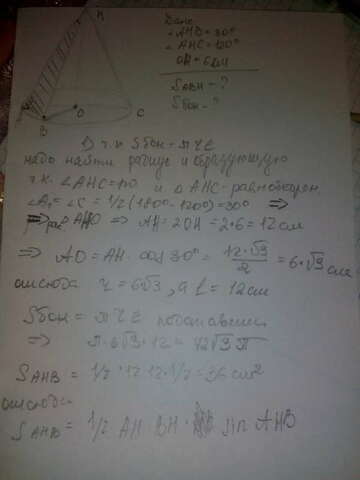 H
A
B
O
C
Дано:
∠AHB=30°
∠AHC=120°
OH=6см
S ABH - ?
S бок - ?
1) т.к Sбок = πrl
надо найти радиус и образующую
т.к. ∠AHC=120 и △ AHC - равнобедрен.
∠A = ∠C = 1/2 (180°-120°)=30° ⇒
⇒ AHO ⇒ AH=2OH = 2*6=12 см
⇒ AO=AH · cos 30° = 12·√3/2 = 6·√3 см
отсюда r = 6√3, а l = 12см
Sбок = πrl подставим
⇒ π·6√3·12=72√3 π
S AHB = 1/2 * 12·12·1/2 = 36 см²
отсюда:
S AHB = 1/2 AH · BH · sin AHB